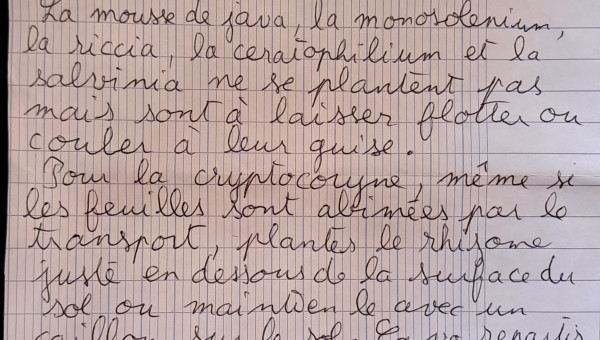 La mousse de java, la monosolenium,
la riccia, la ceratophilium et la
salvinia ne se plantent pas
mais sont à laisser flotter ou
couler à leur guise.
Pour la cryptocoryne, même si
les feuilles sont abimées par le
transport, plantes le rhisome
juste en dessous de la surface du
sol ou maintien le avec un
caillou sur le sol. Ça va repartir